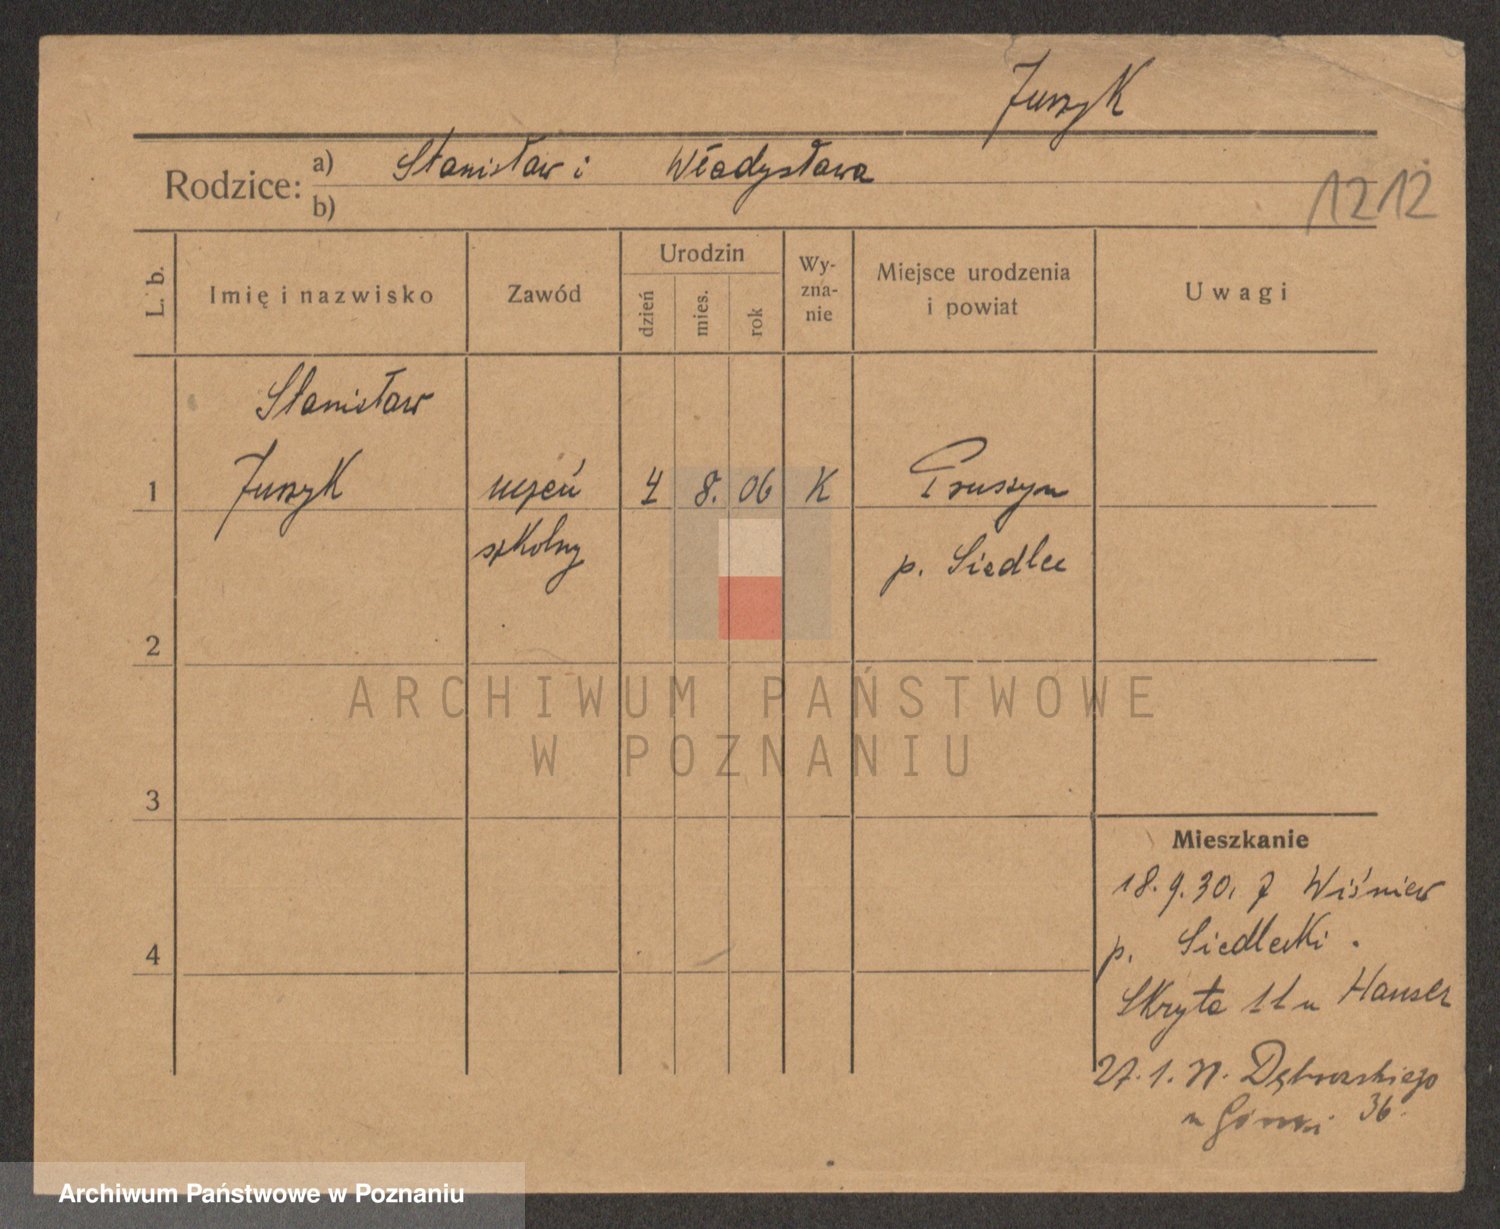 Juszyk
Rodzice: a) Stanisław i Władysława
b)
1212
L. b.
Imię i nazwisko
Zawód
Urodzin
dzień
mies.
rok
Wy-
zna-
nie
Miejsce urodzenia
i powiat
Uwagi
Stanisław
1 Juszyk uczeń 4 8. 06 K Pruszyn
szkolny p. Siedlce
2
3
4
Mieszkanie
18. 9. 30. z Wiśniew
p. Siedlecki.
Skryta 11 u Hauser
27. 1. 31. Dąbrowskiego
36.
ARCHIWUM PAŃSTWOWE
W POZNANIU
Archiwum Państwowe w Poznaniu